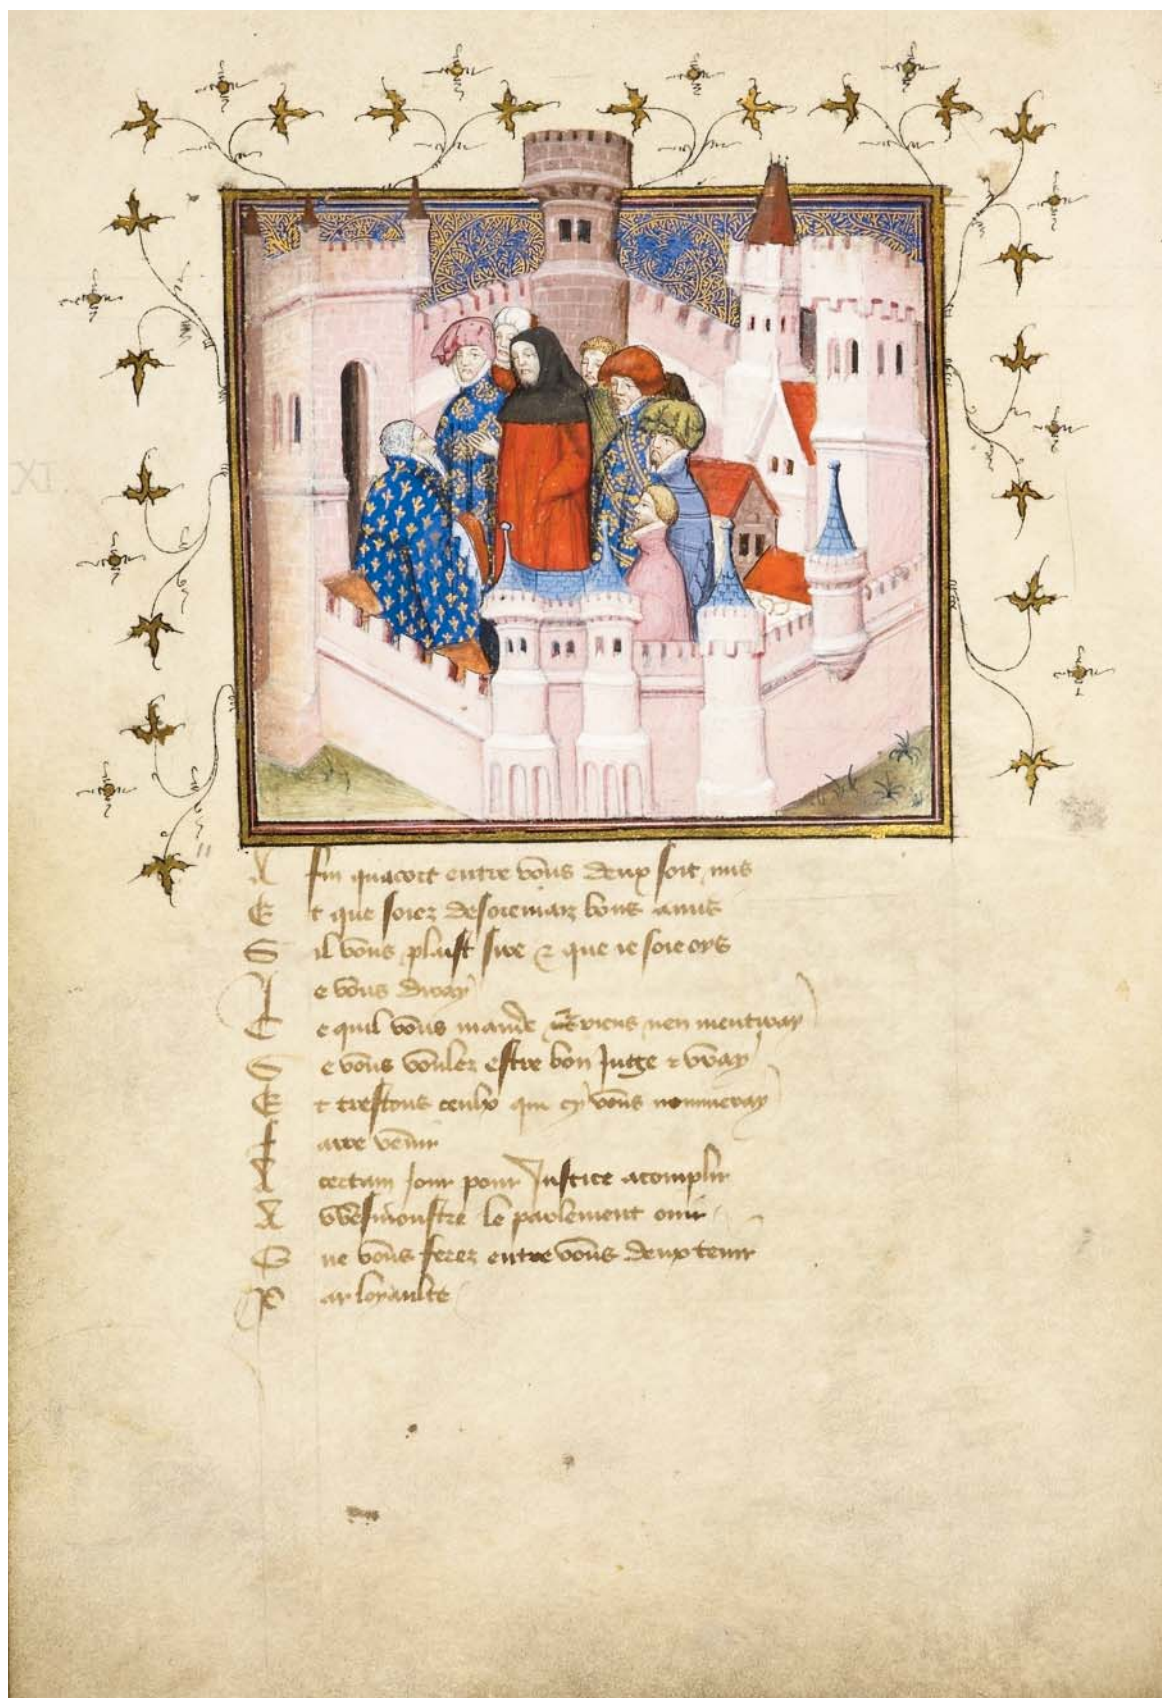 Afin quacort entre vous deux soit mis
Et que soiez desoremaiz bons amis
Sil vous plaist sire & que ie soie oys
Je vous diray
Ce quil vous mande & riens nen mentiray
Se vous voulez estre bon Juge & vray
Et trestous ceulx qui cy vous nommeray
faire venir
A certain jour pour Justice acomplir
A Wesmonstre le parlement ouir
Que vous ferez entre vous deux tenir
Par loyaulte